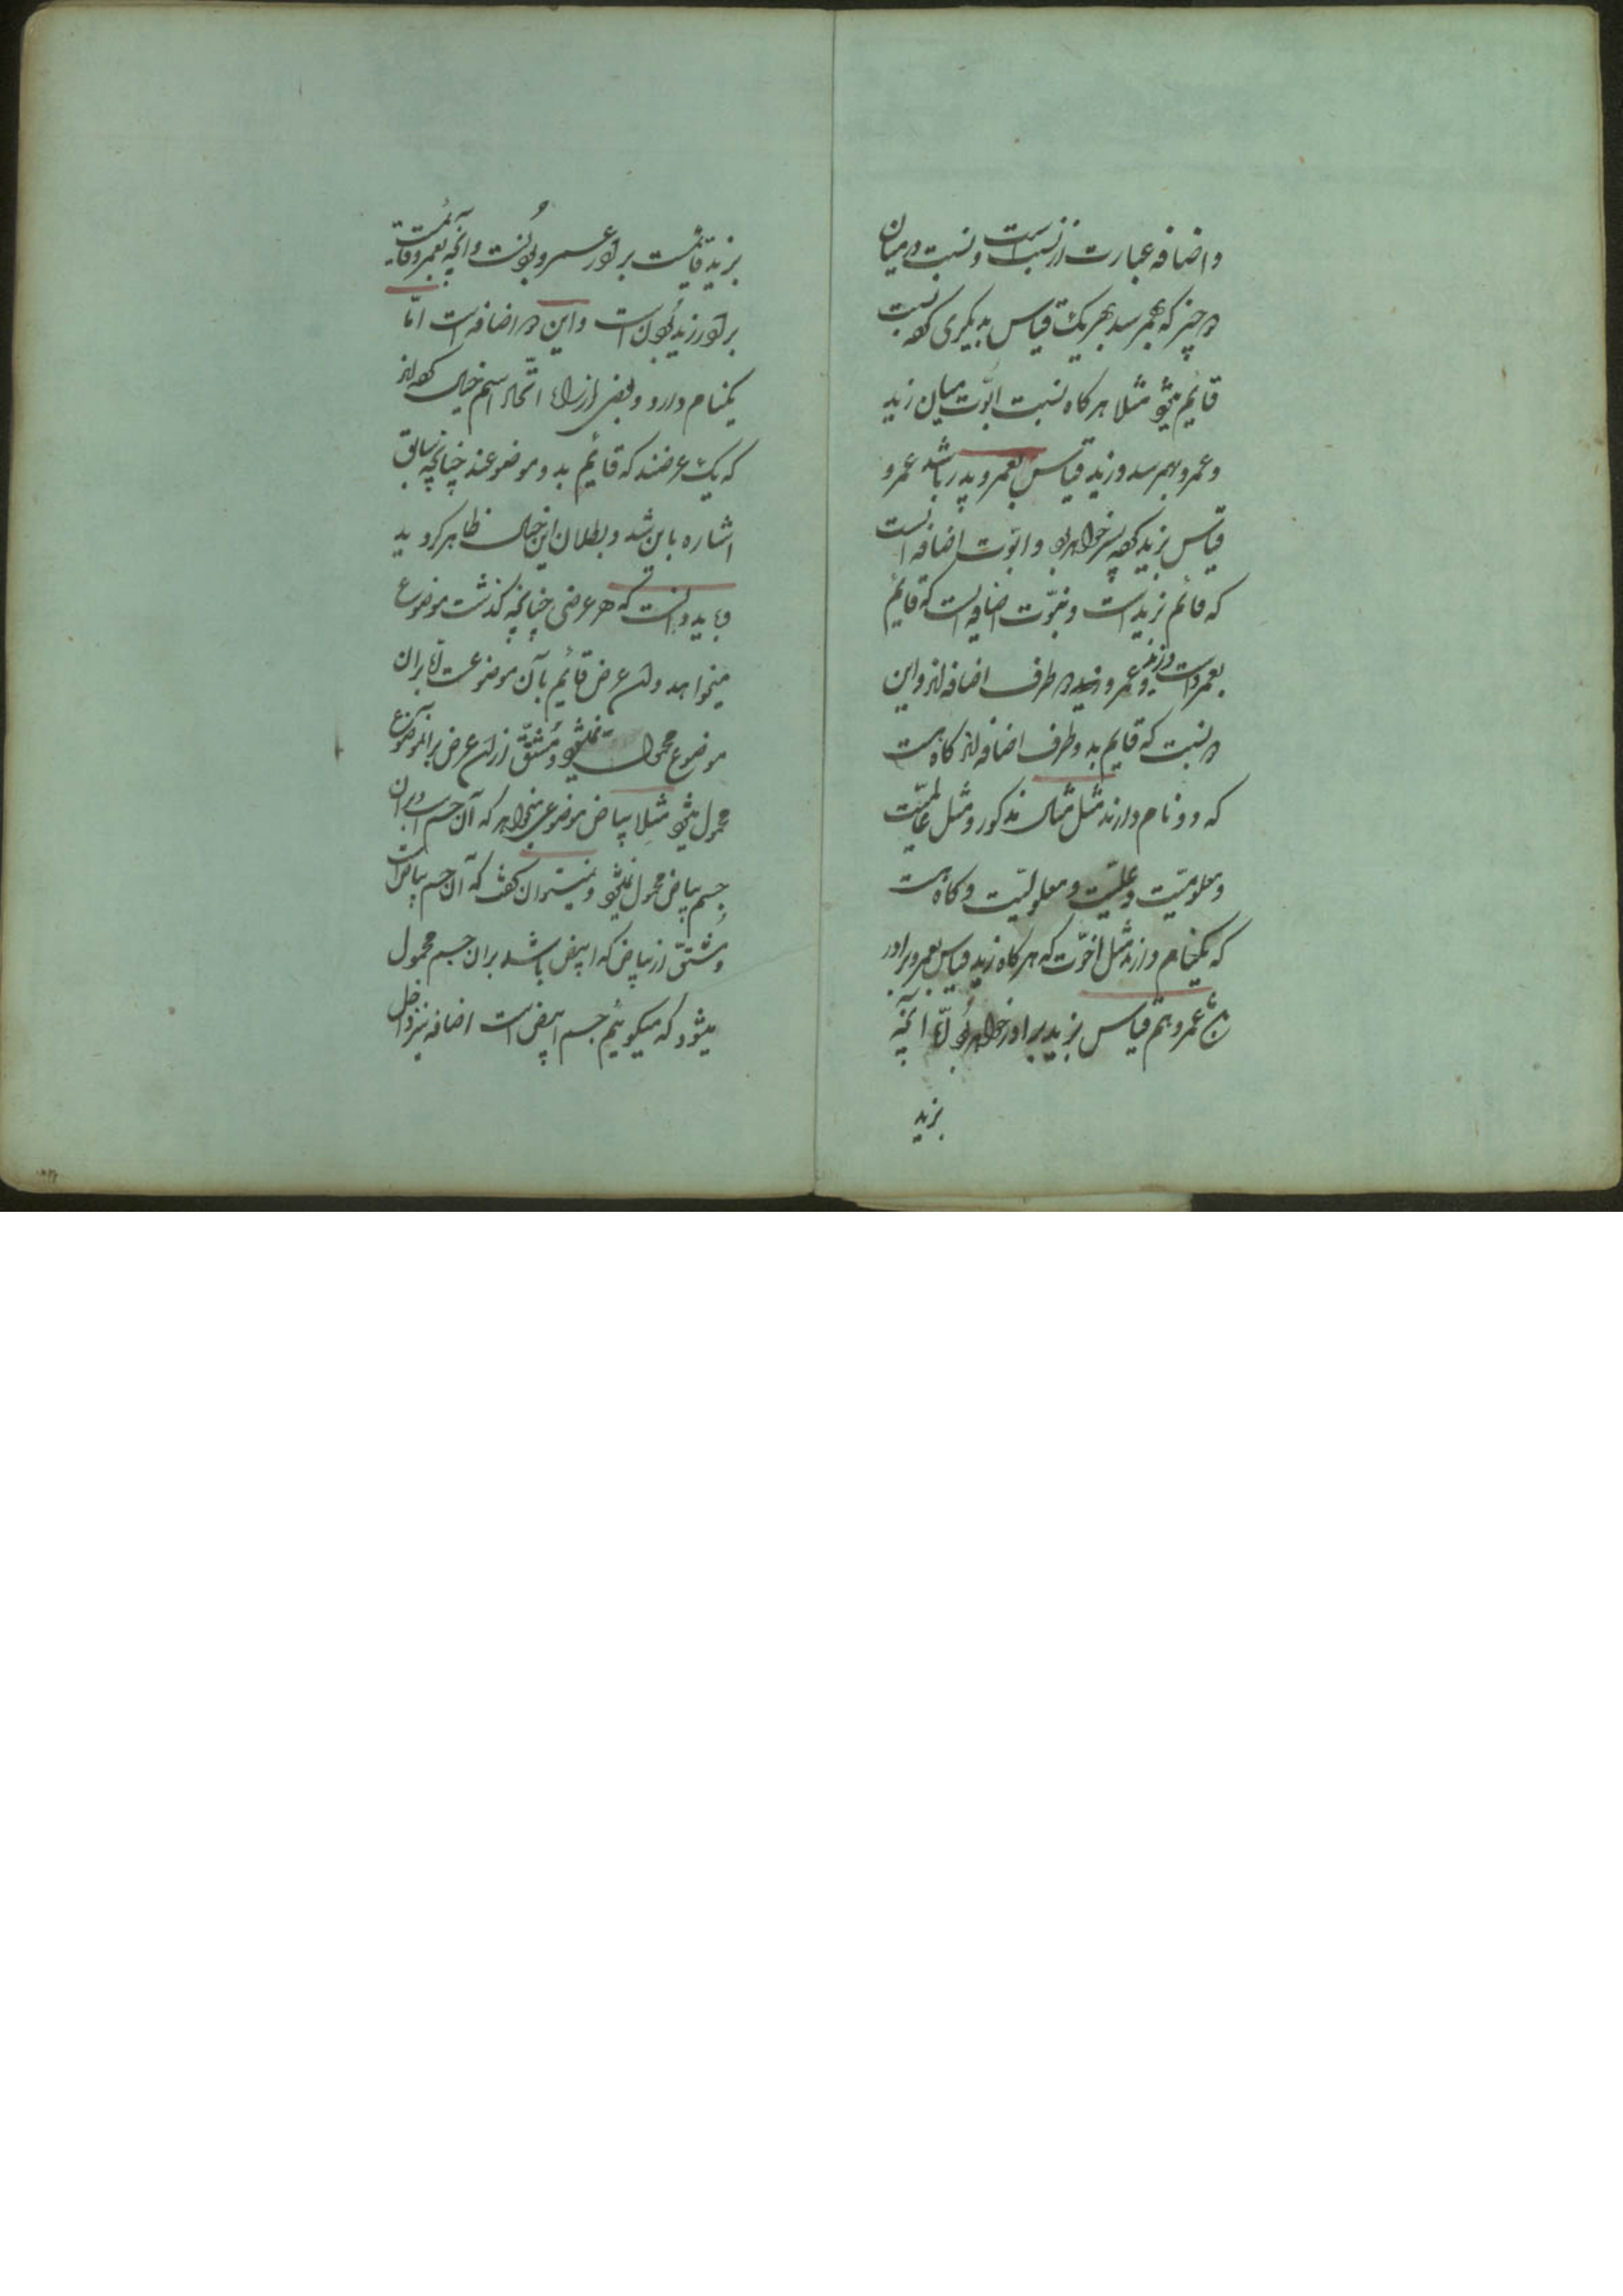 و اضافه عبارت از نسبت است و نسبت در میان
دو چیز که بهم رسد بهر یک قیاس بدیگری که نسبت
قائم میشود مثلا هرگاه نسبت ابوّت میان زید
و عمرو بهم رسد و زید قیاس بعمرو پدر باشد عمرو
قیاس بزید که پسر خواهد بود و ابوّت اضافه است
که قائم بزید است و بنوّت اضافه است که قائم
بعمرو است و زید و عمرو دو طرف اضافه اند و این
دو نسبت که قایم بدو طرف اضافه اند گاه هست
که دو نام دارند مثل مثال مذکور و مثل عالمیّت
و معلومیّت و علیّت و معلولیّت و گاه هست
که یکنام دارند مثل اخوّت که هرگاه زید قیاس بعمرو برادر
باشد عمرو هم قیاس بزید برادر خواهد بود امّا آنچه
بزید
بزید قائمست برادر عمرو بودنست و آنچه بعمرو قائمست
برادر زید بودن است و این دو اضافه است امّا
یکنام دارد و بعضی از اتّحاد اسم خیال کرده‌اند
که یک عرضند که قائم بدو موضوعند چنانچه سابق
اشاره باین شد و بطلان این خیال ظاهر گردید
و باید دانست که هر عرضی چنانچه گذشت موضوع
میخواهد و آن عرض قائم بآن موضوعست امّا بر آن
موضوع محمول نمیشود و مشتقّ از آن عرض بر آنموضوع
محمول میشود مثلا بیاض موضوعی میخواهد که آن جسم است و بر آن
جسم بیاض محمول نمیشود و نمیتوان گفت که آن جسم بیاض است
و مشتقّ از بیاض که ابیض باشد بر آن جسم محمول
میشود که میگوئیم جسم ابیض است اضافه نیز داخل